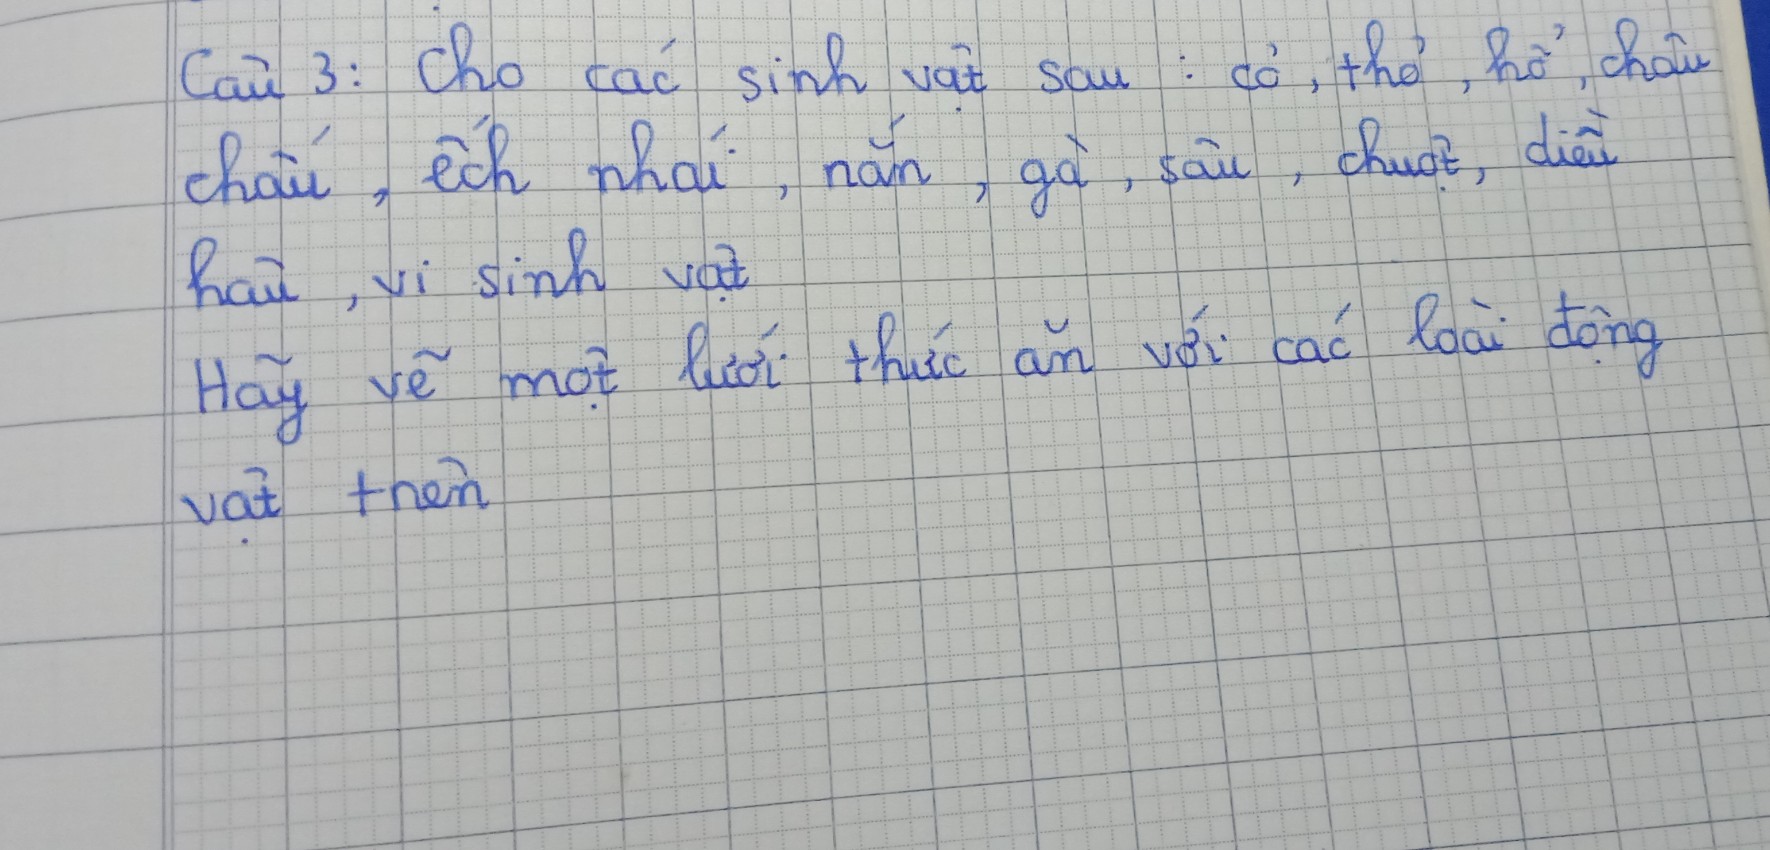 Câu 3: Cho các sinh vật sau : cỏ, thỏ, hổ, châu
chấu, ếch nhái, nấm, gà, sâu, chuột, diều
hâu, vi sinh vật
Hãy vẽ một lưới thức ăn với các loài động
vật trên